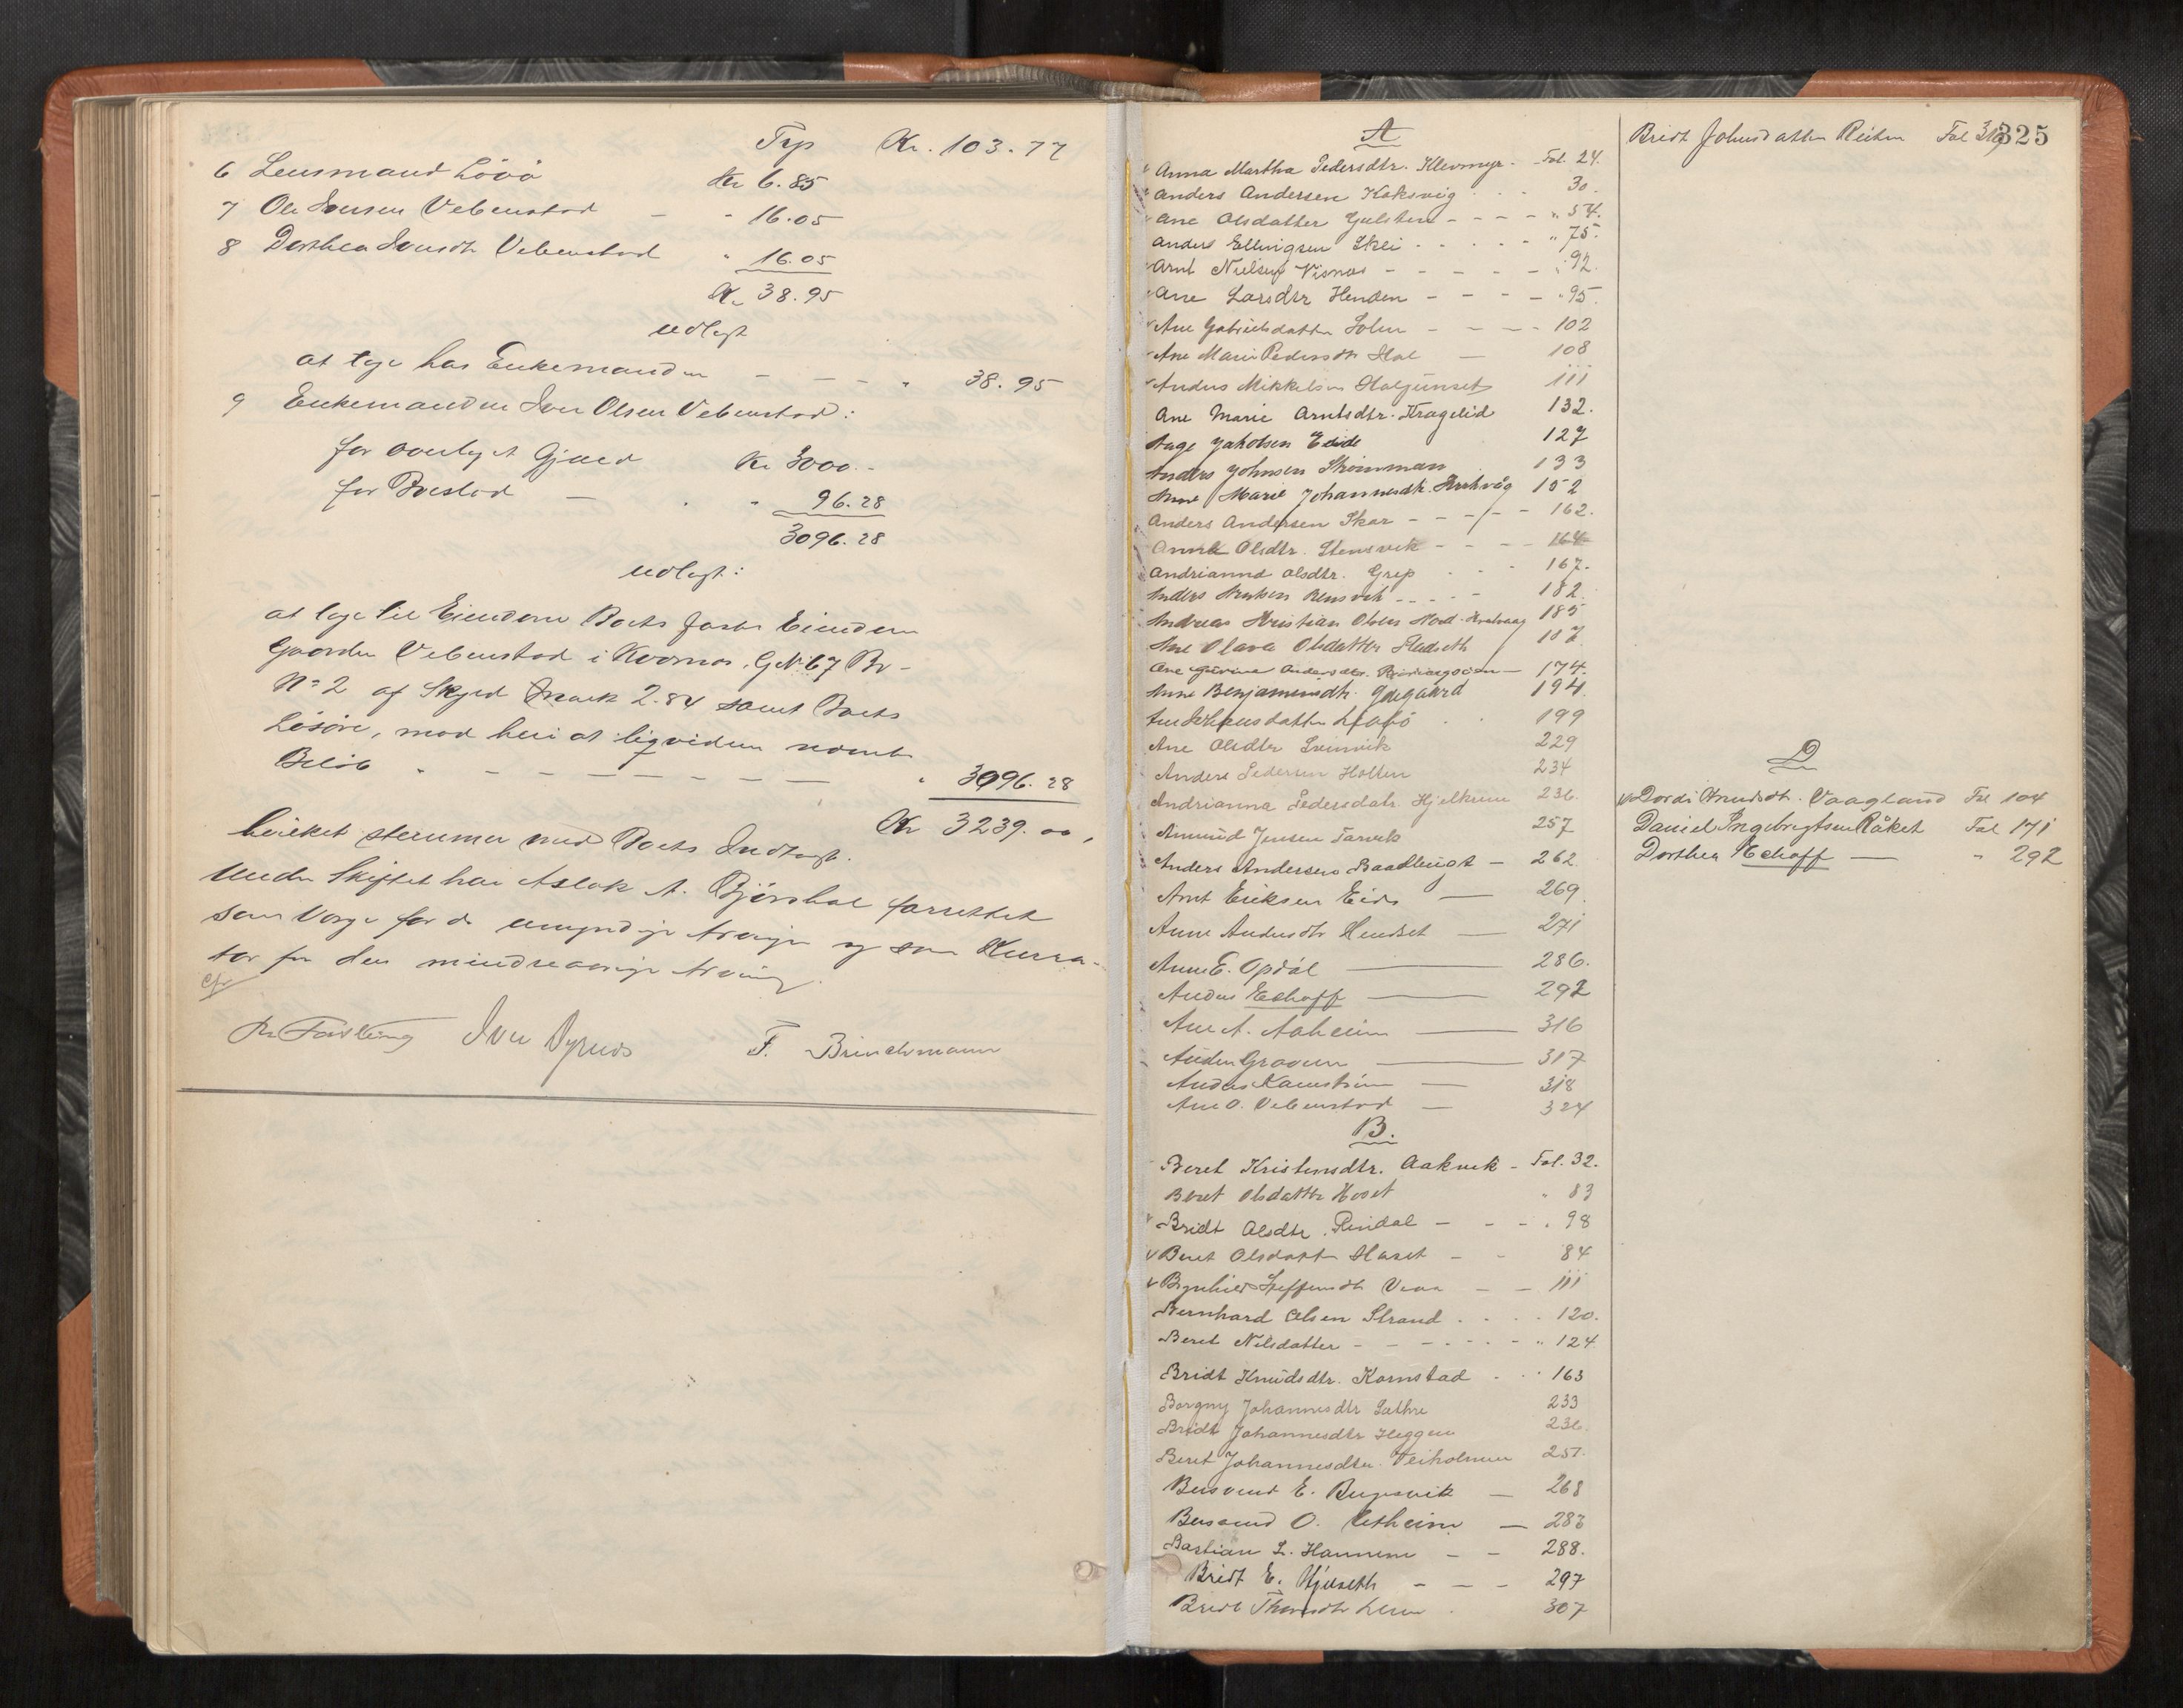 Trp Kr. 103.77
6 Lensmand Löóö Kr 6.85
7 Ole Iversen Vebenstad - - 16.05
8 Dorthea Iversdtr Vebenstad " 16.05
Kr 38.95
udlagt
at tage hos Enkemanden - - - " 38.95
9 Enkemanden Iver Olsen Vebenstad:
for overtaget Gjæld Kr 3000.-
for Boeslod - " 96.28
3096.28
udlagt:
at tage til Eiendom Boets faste Eiendom
Gaarden Vebenstad i Kvernes, G.No 67 Br-
No 2 af Skyld Mark 2.84 samt Boets
Lösöre, mod heri at liqvidere nævnte
Belöb - - - - - - - " 3096.28
Kr 3239.00,
hvilket stemmer med Boets Indtægt.
Under Skiftet har Aslak A. Bjørshol forrettet
som Værge for de umyndige Arvinger og som Kura-
tor for den mindreaarige Arving.
Iver Vyrnes F. Brinchmann
325
A
Anna Martha Pedersdtr. Klevmyr - Fol. 24.
Anders Andersen Koksvig - - - 30.
Ane Olsdatter Gulsten - - - - " 54.
Anders Ellingsen Skei - - - - - " 75.
Arnt Nielsen Visnæs - - - - - " 92.
Ane Larsdtr Henden - - - - " 95.
Ane Gabrielsdatter Solem - - - - 102
Ane Marie Pedersdtr Hol - 108
Anders Mikkelsen Halgunset 111
Ane Marie Arntsdtr. Kragelid 132.
Aage Jakobsen Eide 127
Anders Johnsen Strömman 133
Anne Marie Johannesdtr. 152
Anders Andersen Skar - - - - - 162.
Anne Olsdtr. Stensvik - - - - 164
Andrianna Olsdtr. Grip - - - 167.
Anders Knutsen Rensvik - - - - 182.
Andreas Kristian Olsen Nord-Kvalvaag 185
Ane Olava Olsdatter Hadseth 187
Ane Gurine Andersdtr. - 174.
Anne Benjaminsdtr. Ødegaard 194.
199
Ane Olsdtr Svinvik 229
Anders Pedersen Holten 234
Andrianna Pedersdatr. Hjelkrem 236.
Amund Jensen Tarvik 257
Anders Andersen Baadbugt - 262.
Arnt Eriksen Eide - 269.
Anne Andersdtr Hendset - 271
Anne E. Opdal - 286.
Anders Eshoff - 292
Ane A. Aaheim - 316
Auden Gravem - 317
Anders Kamstrøm - 318
Ane O. Vebenstad - 324
B.
Beret Kristensdtr. Aakvik - Fol. 32.
Beret Olsdatter Hoset " 83
Bridt Olsdtr. Rindal - - - " 98
Beret Olsdatter Haset - - 84
Brynhild Steffensdtr Vevan - - 111
Bernhard Olsen Strand - - - - 120.
Beret Nilsdatter - - - - - - " 124
Bridt Knudsdtr. Kornstad - - - 163
Borgny Johannesdtr Sæthre 233
Bridt Johannesdtr Heggem 236.
Beret Johannesdtr. Veiholmen 251.
Bersvend E. Bugesvik - 268
Bersvend O. Aksheim - 283
Bastian L. Hannem - - 288.
Bridt E. Hjelseth - - - 297
Bridt 307
Bridt Johnsdatter Reiten Fol 319
D
Dordi Knudsdtr. Vaagland Fol 104
Daniel Ingebrigtsen Råket Fol 171
Dorthea Eshoff - " 292